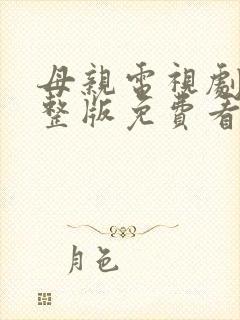 母親電視劇
整版免費看
月色